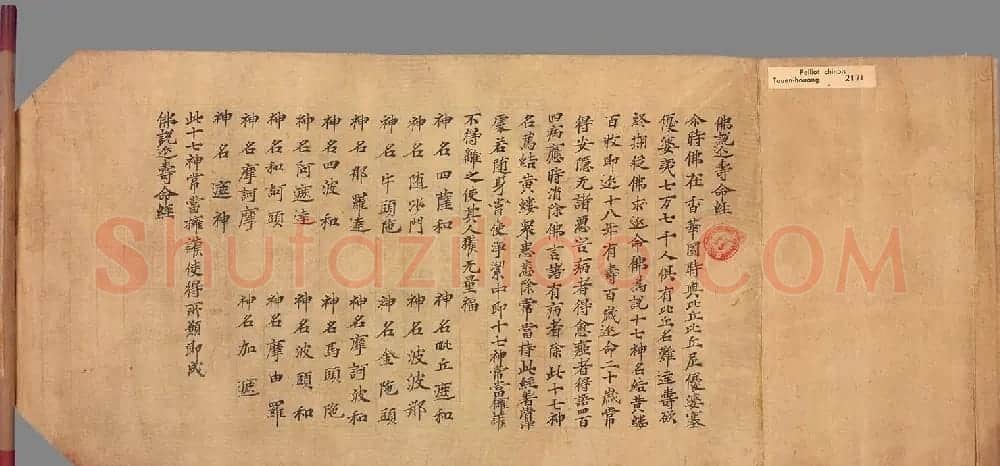 佛説延壽命經
尒時佛在香華園時與比丘比丘尼優婆塞
優婆夷七万七千人俱有比丘名難達壽欲
終從佛求延命佛為説十七神名結黄縷
百枚即延十八年有壽百歲延命二十歲常
得安隱无諸惡害病者得愈者得語四百
四病應時消除佛言諸有病者除此十七神
名為結黄縷衆患悉除常當持此經著
處若随身當使淨潔中即十七神常當擁護
不得離之使其人獲无量福
神名四薩和 神名毗丘遮和
神名随水門 神名波波那
神名牛頭陁 神名金陁頭
神名那羅達 神名摩訶波和
神名四波和 神名馬頭陁
神名阿遮達 神名波頭和
神名和訶頭 神名摩由羅
神名摩訶摩 神名加遮
神名遮神
此十七神常當擁護使得所願即成
佛説延壽命經
Pelliot chinois
Touen-houang 2171
Shufaziliao.COM